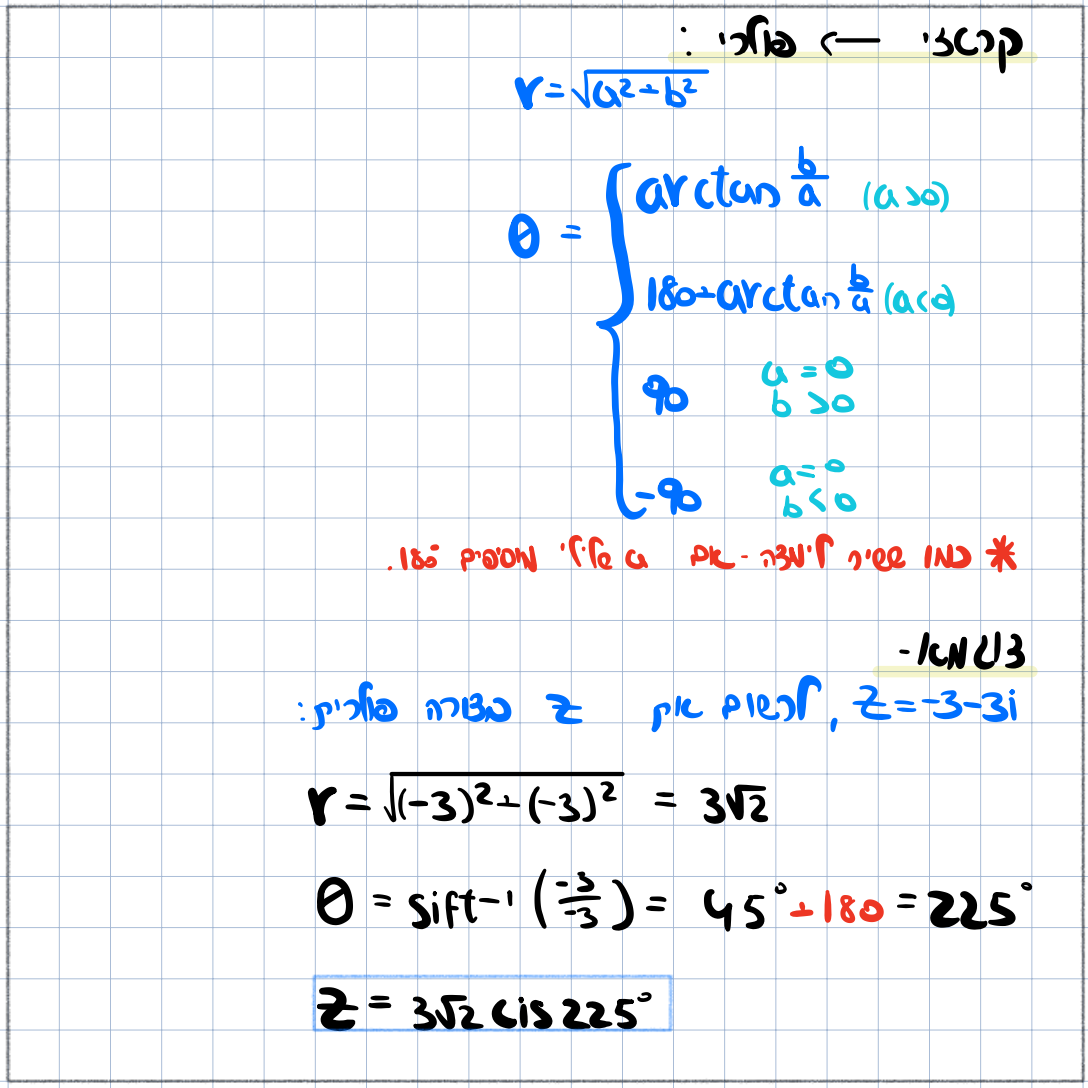 קרטזי ← פולרי :
r = √(a² + b²)
θ = { arctan b/a (a>0)
180+arctan b/a (a<0)
90 a = 0 b > 0
-90 a = 0 b < 0
* כמו ששיר לימדה - אם a שלילי מוסיפים 180°.
דוגמא -
z = -3-3i , לרשום את z בצורה פולרית :
r = √((-3)² + (-3)²) = 3√2
θ = sift-1 (-3/-3) = 45° + 180 = 225°
z = 3√2 cis 225°